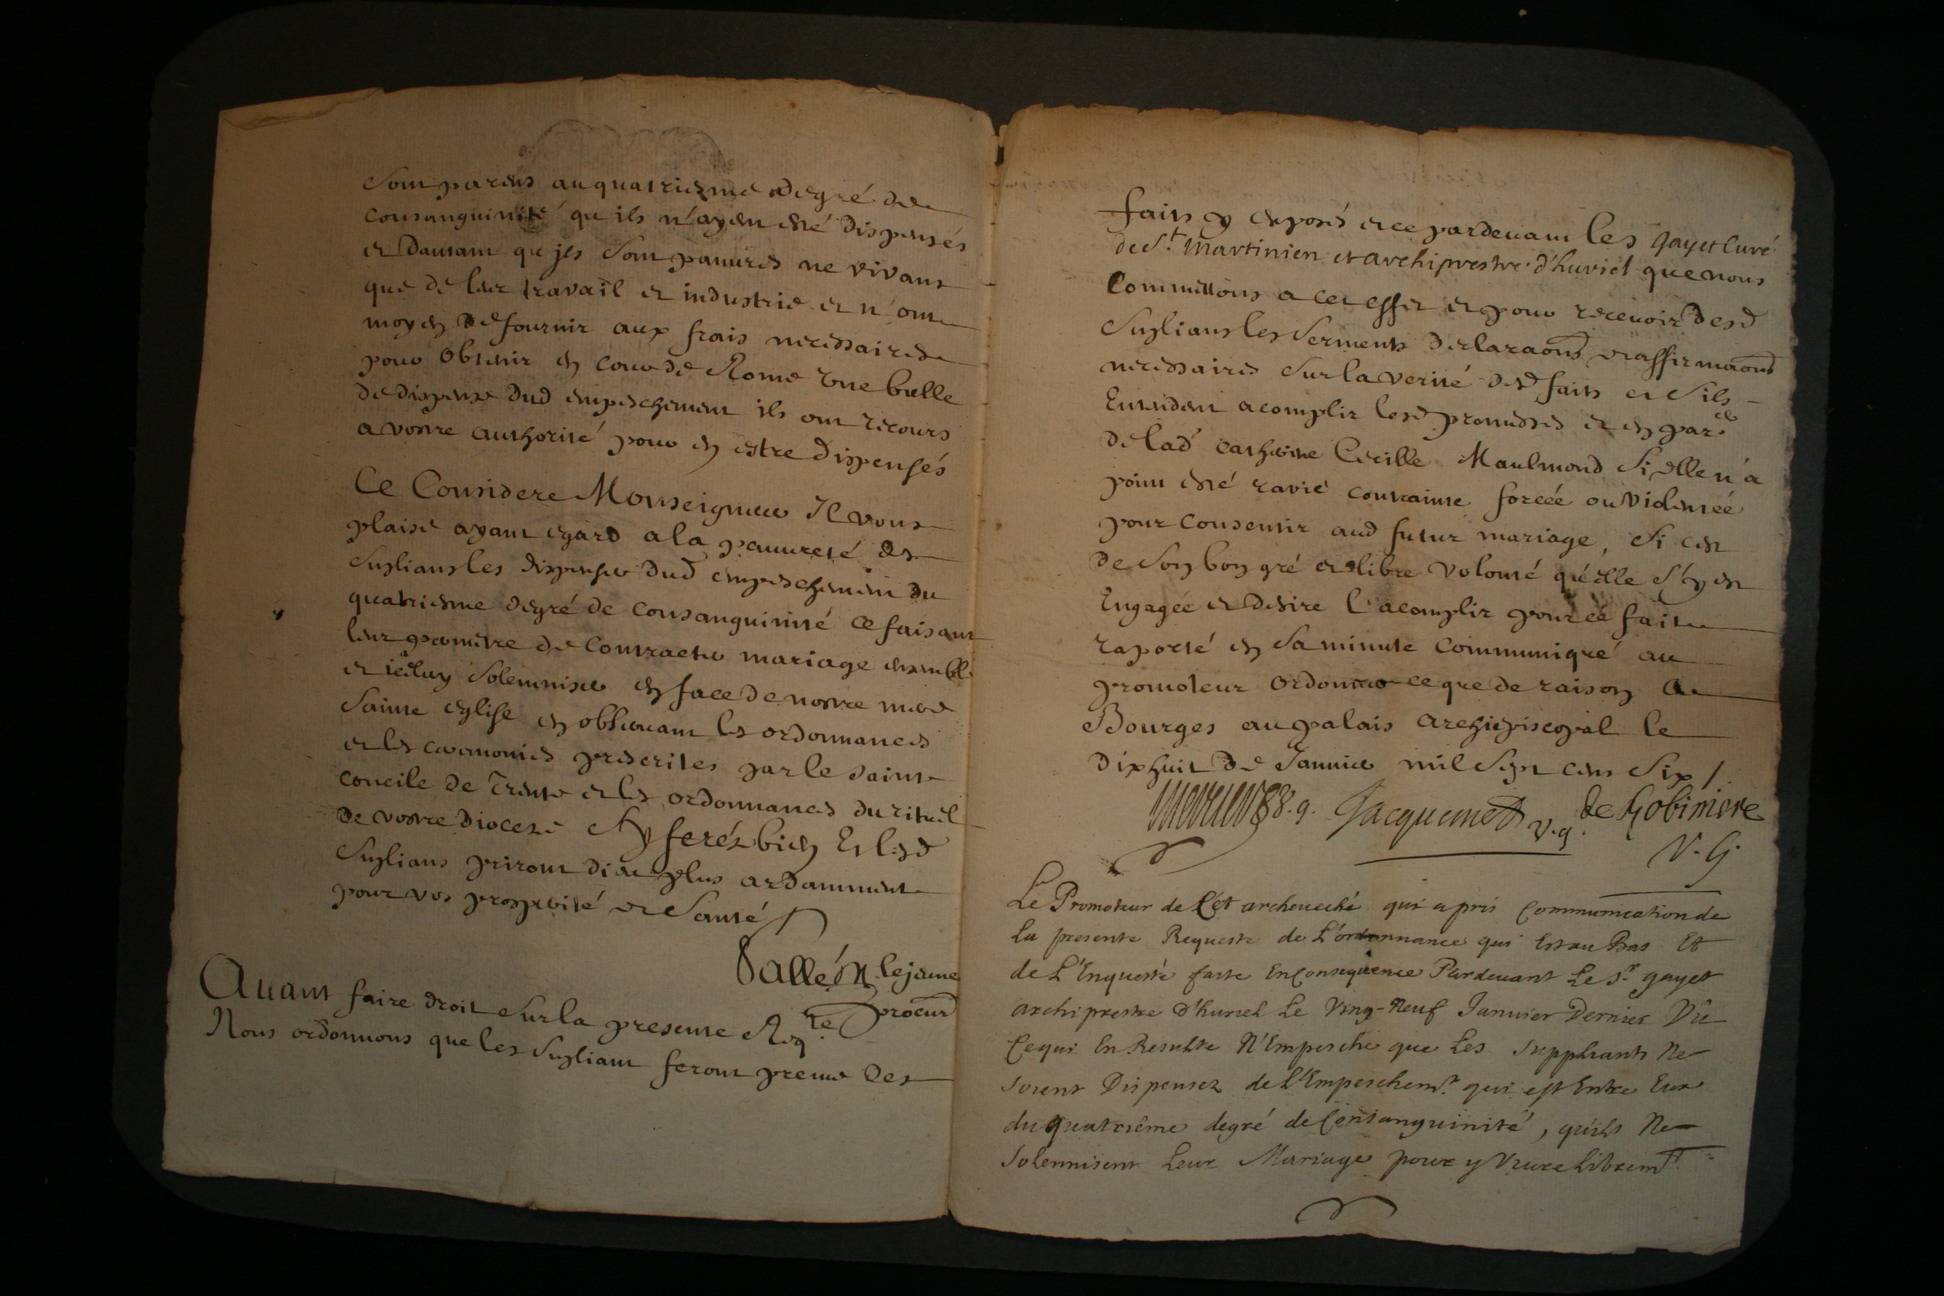 sont parens au quatriesme degré de
consanguinité qu ils n'ayen esté dispensés
et dautant qu jls sont pauures ne vivans
que de leur travail et industrie et n'ont
moyen de fournir aux frais necessaires
pour obtenir en cour de Rome une bulle
de dispense dud empeschement ils ont recours
a vostre authorité pour en estre dispensés
Ce Consideré Monseigneur Il vous
plaise ayant egard a la pauureté des
suplians les dispenser dud empeschement du
quatriesme degré de consanguinité ce faisant
leur permettre de contracter mariage ensemble
et iceluy solemniser en face de nostre mere
sainte eglise en obseruant les ordonnances
et les ceremonies prescrites par le saint
concile de Trente et les ordonnances du rituel
de vostre diocese Sy feréz bien Et lesd
suplians priront dieu plus ardamment
pour vos prosperité et santé
Valléé le jeune
procur
Auant faire droit sur la presente Reqte
Nous ordonnons que les supliant feront preuue des
faits y exposés et ce pardeuant les gayet Curé
de St Martinien et archiprestre d'huriel que nous
Commettons a cet effet et pour receuoir desd
suplians les serments declaraons et affirmaons
necessaires sur la verité desd faits et s'ils
Entendent acomplir lesd promesses et en par
de lad catherine Cecille Maulmond si elle n'a
point esté ravie contrainte forcée ou violentée
pour consentir aud futur mariage, si c'est
de son bon gré et libre volonté qu'elle s'y est
Engagée et desire l'acomplir pour ce fait
raporté en sa minute communiqué au
promoteur ordonner ce que de raison A
Bourges au palais archiepiscopal le
dixhuit de Januier mil sept cens six /.
g. Jacquemet v.g. de Gobiniere
V. G.
Le Promoteur de Cet archeueché qui a pris Communication de
La presente Requeste de L'ordonnance qui Est au Bas Et
de L'Enqueste faite En Consequence Pardeuant Le Sr gayet
archiprestre d'huriel Le Ving-Neuf Januier Dernier Vû
Ce qui En Resulte N'Empesche que Les supplians Ne
soient Dispensez de L'Empeschemt qui est Entre Eux
du quatriême degré de Consanguinité, qu'ils Ne
solennisent Leur Mariage pour y Viure Libremt.